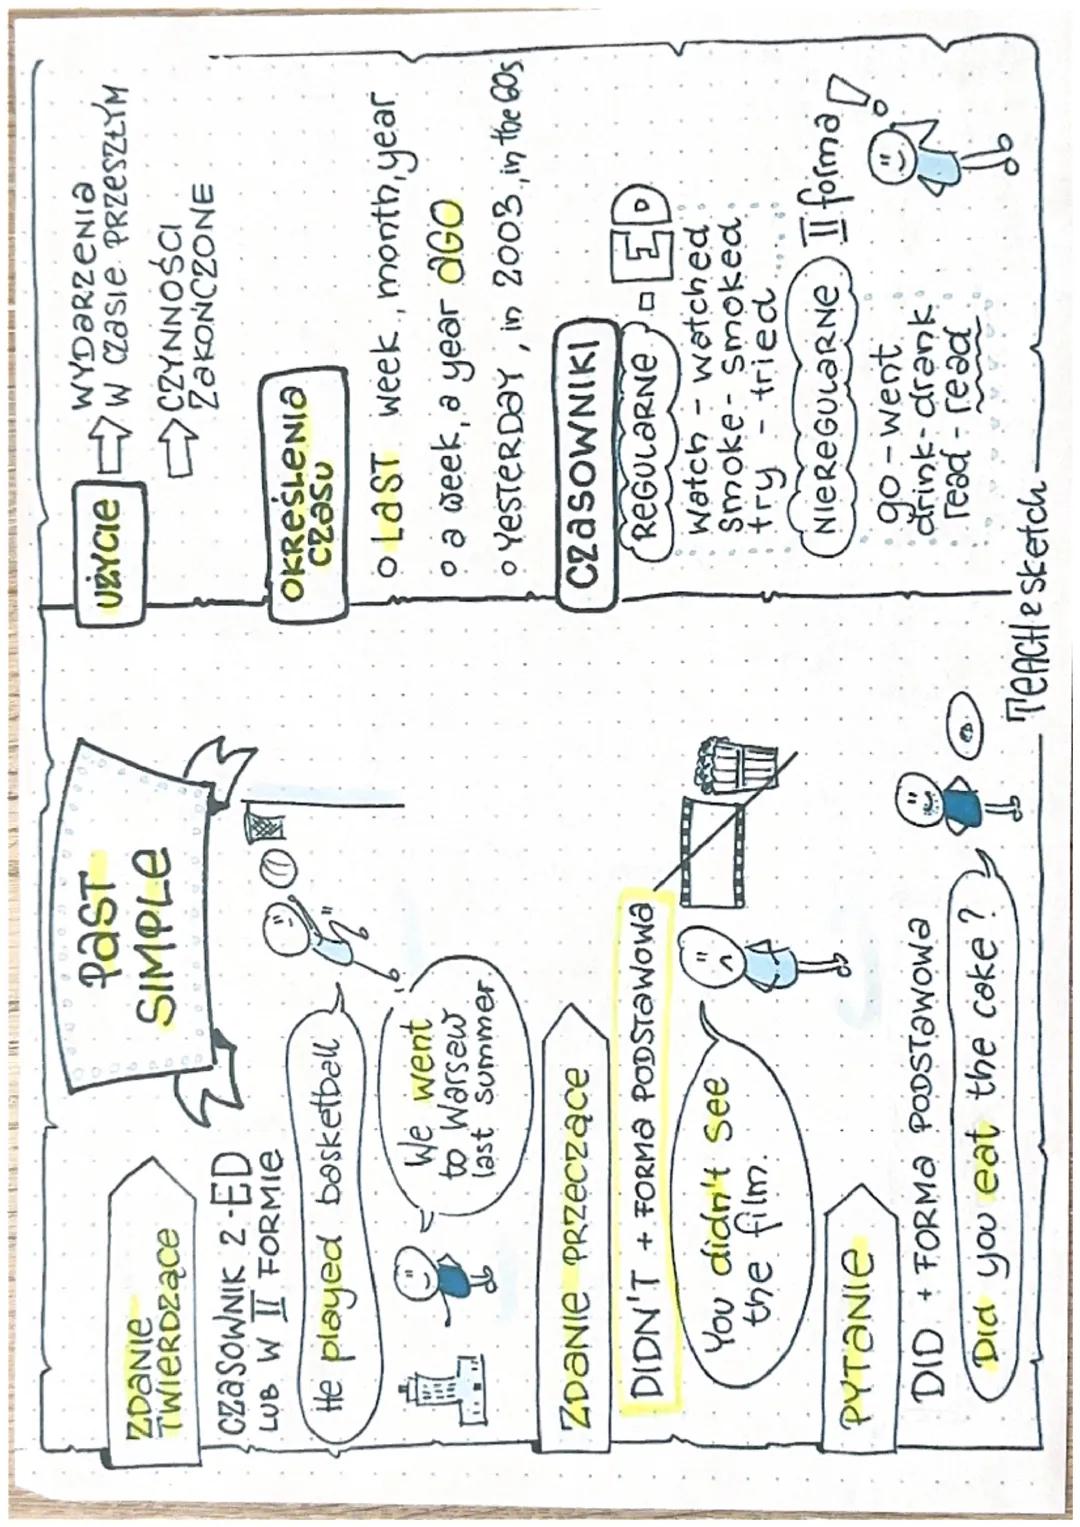 PAST
SIMPLE
ZDANIE
TWIERDZĄCE
CZASOWNIK Z -ED
LUB W II FORMIE
He played basketball
We went
to Warsaw
last summer
ZDANIE PRZECZĄCE
DIDN'T + FORMA PODSTAWOWA
You didn't see
the film.
PYTANIE
DID + FORMA PODSTAWOWA
Did you eat the cake?
UŻYCIE
WYDARZENIA
W CZASIE PRZESZŁYM
CZYNNOŚCI
ZAKOŃCZONE
OKREŚLENIA
CZASU
LAST week, month, year
a week, a year AGO
YESTERDAY, in 2003, in the 60s
CZASOWNIKI
REGULARNE - ED
watch - watched
smoke - smoked
try - tried
NIEREGULARNE II forma!
go - went
drink - drank
read - read
TEACH & sketch